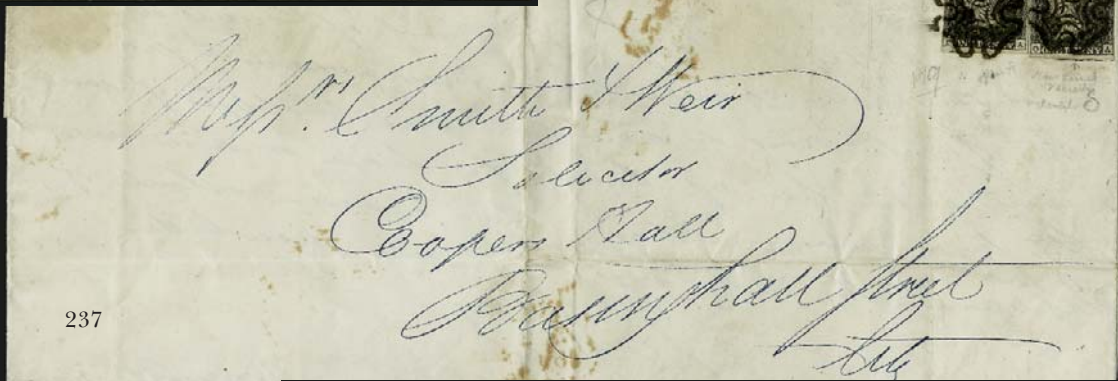 Messrs. Smith & Weir
Solicitor
Coopers Hall
Basinghall Street
City
237